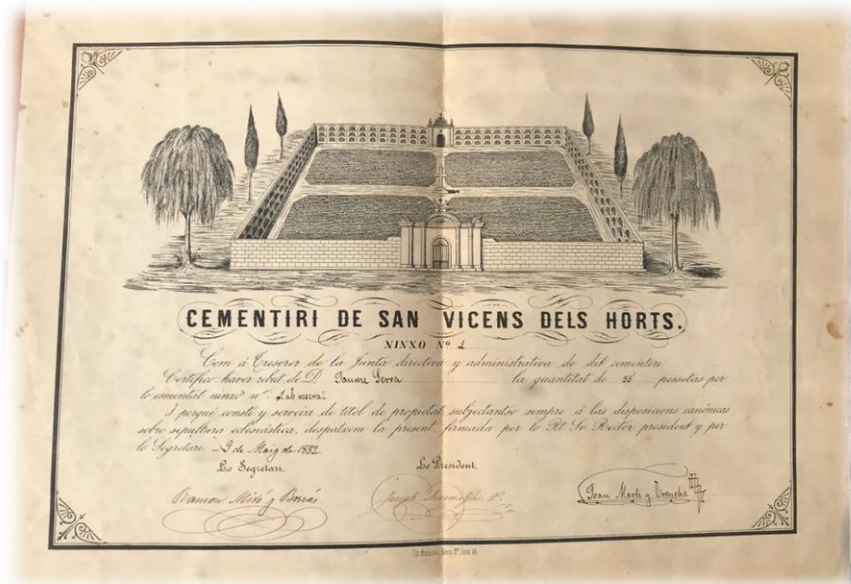 CEMENTIRI DE SAN VICENS DELS HORTS.
NINXO Nº 1
Com á Tresorer de la Junta directiva y administrativa de dit cementiri
Certifico: haver rebut de D. Jaume Serra la quantitat de 25 pessetas por
lo esmentat ninxo nº
I perqué consti y serveixi de titol de propietat subjectantse sempre á las disposicions canónicas
sobre sepultura eclesiástica, despatxem la present, firmada per lo Rt. Sr. Rector president y per
lo Segretari. 9 de Maig de 1882.
Lo Segretari, Lo President,
Ramon Miró y Borrás Joseph Joan Martí y Trenchs